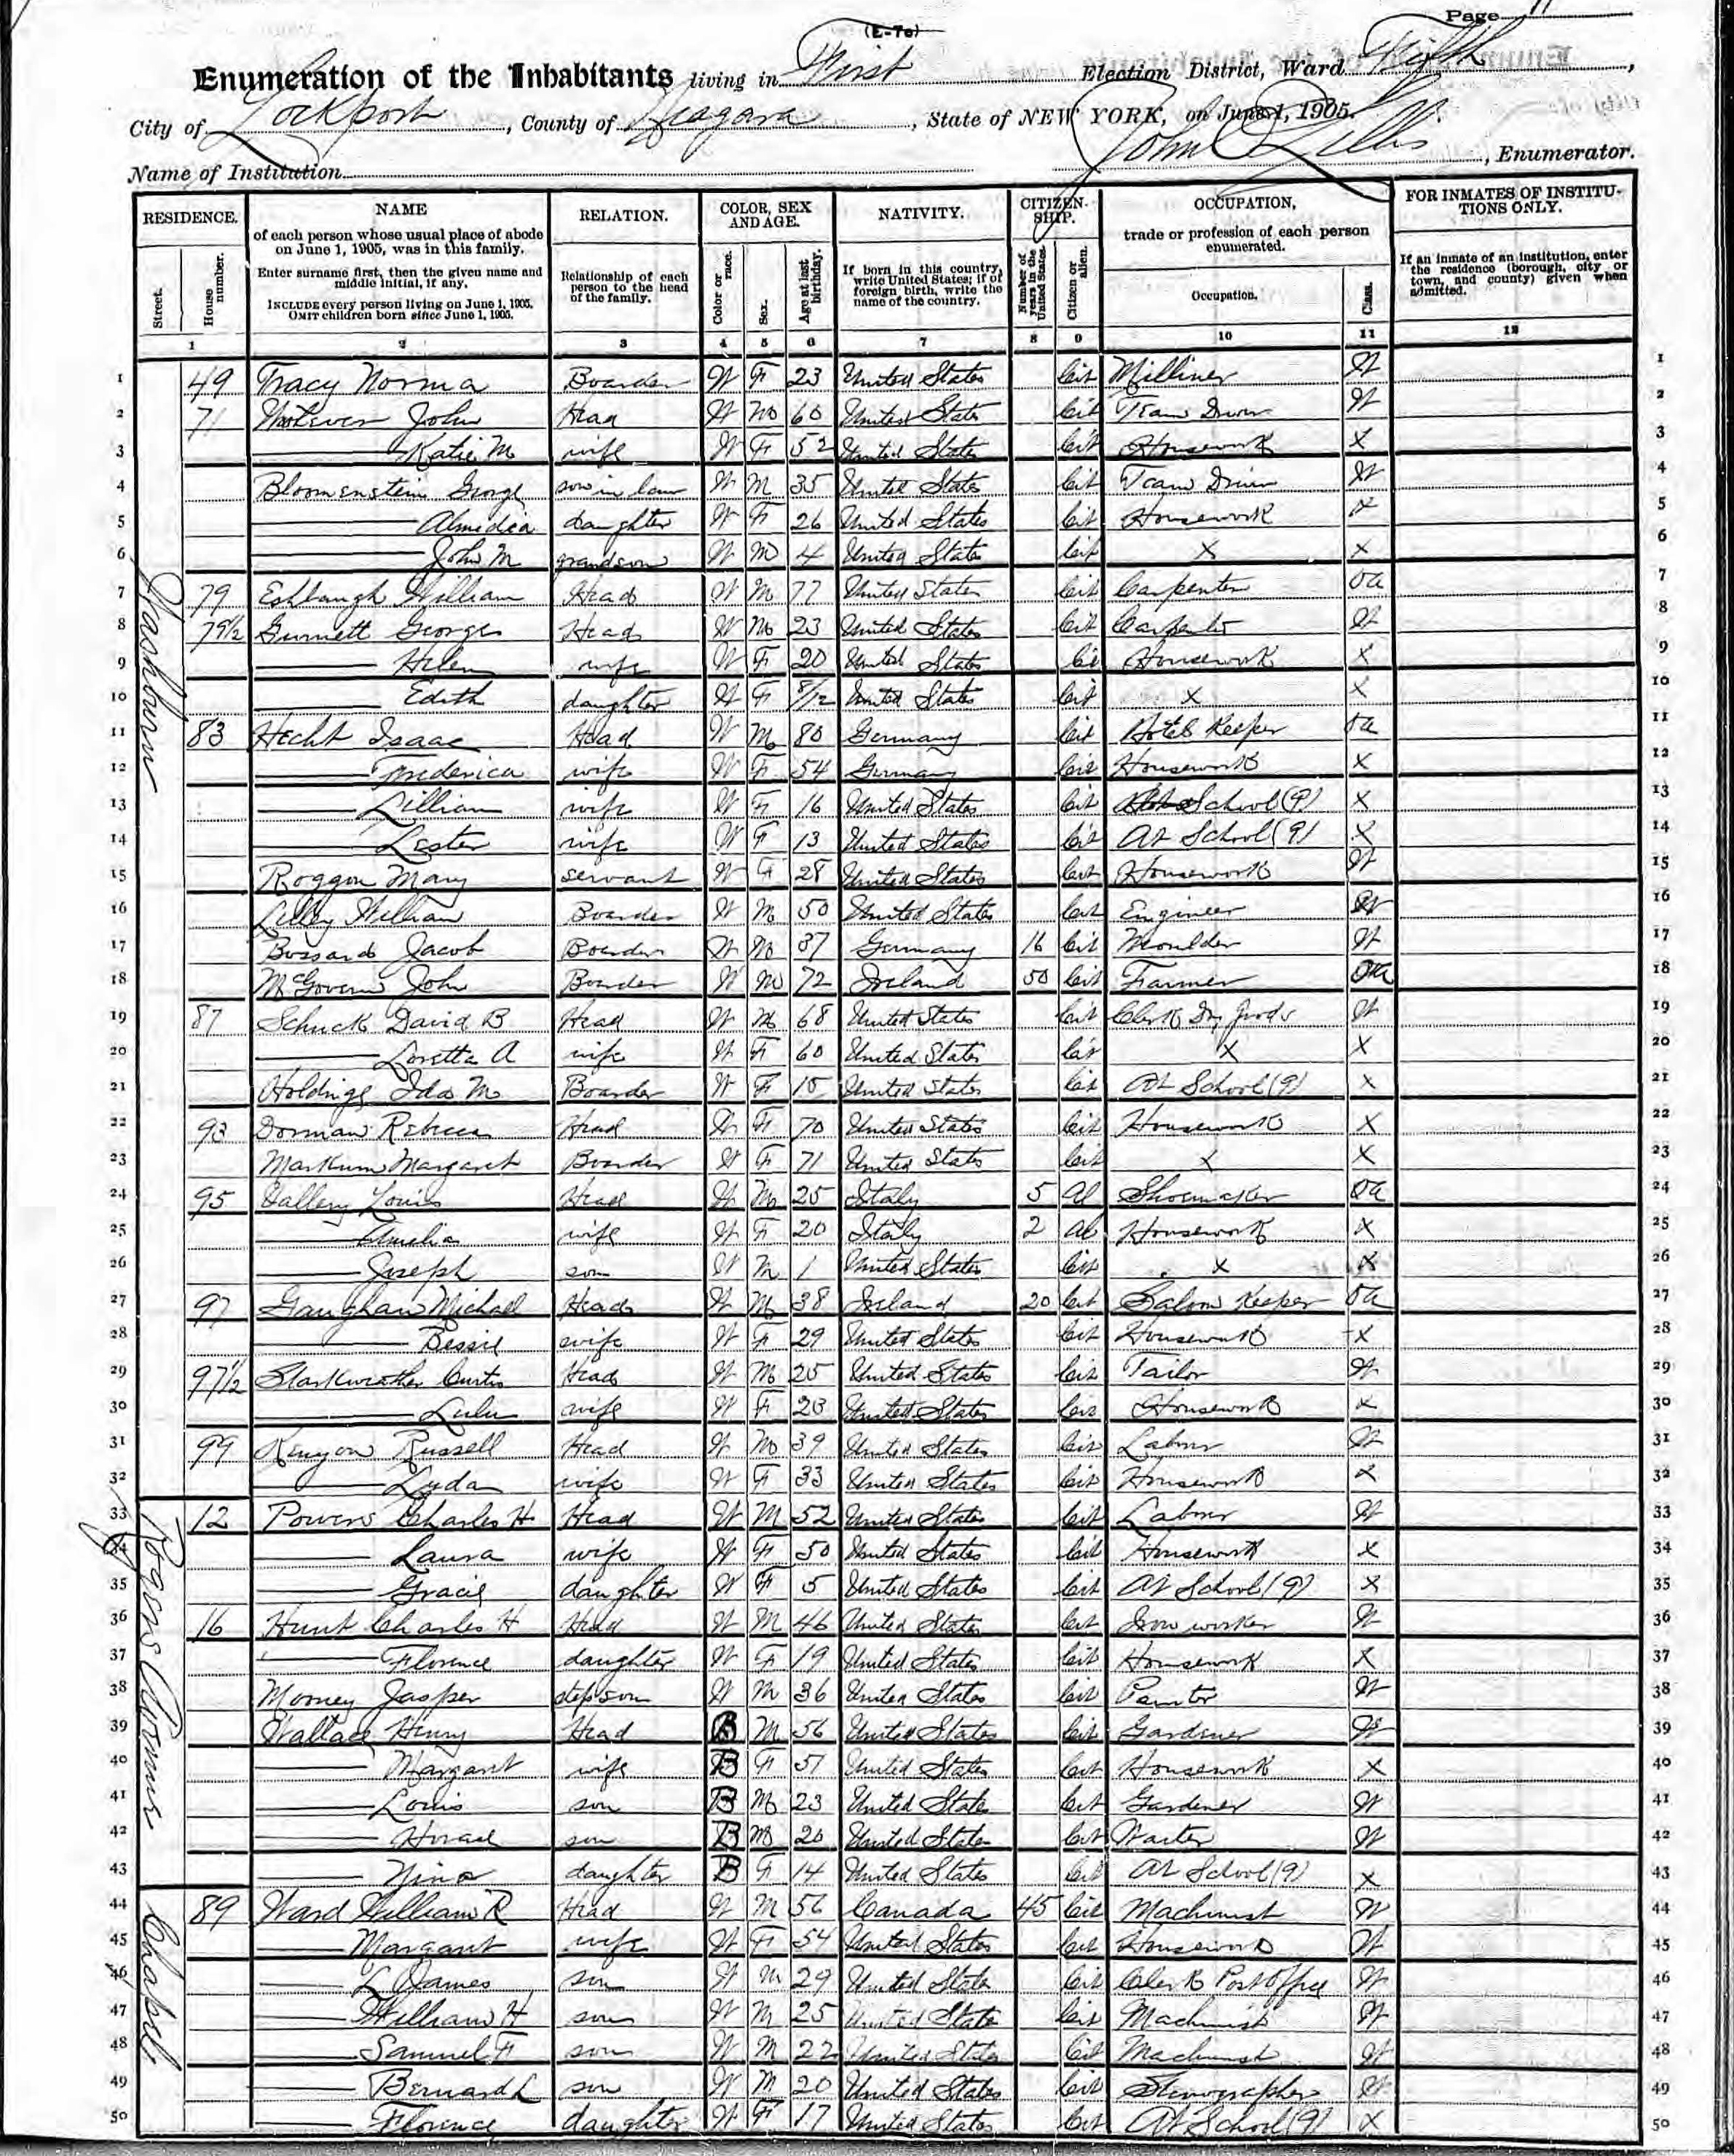 Page 11
(E-70)
Enumeration of the Inhabitants living in First Election District, Ward Fifth,
City of Lockport, County of Niagara, State of NEW YORK, on June 1, 1905.
Name of Institution John, Enumerator.
RESIDENCE. NAME RELATION. COLOR, SEX AND AGE. NATIVITY. CITIZEN-SHIP. OCCUPATION, FOR INMATES OF INSTITU-TIONS ONLY.
of each person whose usual place of abode on June 1, 1905, was in this family.
trade or profession of each person enumerated.
Enter surname first, then the given name and middle initial, if any.
INCLUDE every person living on June 1, 1905.
OMIT children born since June 1, 1905.
Street. House number. Relationship of each person to the head of the family. Color or race. Sex. Age at last birthday. If born in this country, write United States; if of foreign birth, write the name of the country. Number of years in the United States. Citizen or alien. Occupation. Class. If an inmate of an institution, enter the residence (borough, city or town, and county) given when admitted.
1 2 3 4 5 6 7 8 9 10 11 12
1 49 Tracy Norma Boarder W F 23 United States Cit Milliner W 1
2 71 John Head W M 60 United State Cit Team Driver W 2
3 Katie M wife W F 52 United States Cit Housework X 3
4 Bloomenstein George son in law W M 35 United States Cit Team Driver W 4
5 Almedea daughter W F 26 United States Cit Housework X 5
6 John M grandson W M 4 United States Cit X X 6
Washburn
7 79 Eshbaugh William Head W M 77 United States Cit Carpenter OA 7
8 79½ Gurnett George Head W M 23 United States Cit Carpenter W 8
9 Helen wife W F 20 United States Ci Housework X 9
10 Edith daughter W F 8/12 United States Cit X X 10
11 83 Hecht Isaac Head W M 80 Germany Cit Hotel Keeper OA 11
12 Frederica wife W F 54 Germany Cit Housework X 12
13 Lillian wife W F 16 United States Cit School (9) X 13
14 Lester wife W F 13 United States Cit At School (9) X 14
15 Roggon Mary servant W F 28 United States Cit Housework W 15
16 William Boarder W M 50 United States Cit Engineer W 16
17 Bossard Jacob Boarder W M 37 Germany 16 Cit Moulder W 17
18 McGovern John Boarder W M 72 Ireland 50 Cit Farmer OA 18
19 87 Schuck David B Head W M 68 United States Cit Clerk Dry Goods W 19
20 Loretta A wife W F 60 United States Cit X X 20
21 Holdings Ida M Boarder W F 15 United States Cit At School (9) X 21
22 93 Dorman Rebecca Head W F 70 United States Cit Housework X 22
23 Markum Margaret Boarder W F 71 United States Cit X X 23
24 95 Vallery Louis Head W M 25 Italy 5 Al Shoemaker OA 24
25 Amelia wife W F 20 Italy 2 Al Housework X 25
26 Joseph son W M 1 United States Cit X X 26
27 97 Gaughan Michael Head W M 38 Ireland 20 Cit Saloon Keeper OA 27
28 Bessie wife W F 29 United States Cit Housework X 28
29 97½ Starkweather Curtis Head W M 25 United States Cit Tailor W 29
30 Lulu wife W F 23 United States Cit Housework X 30
31 99 Kenyon Russell Head W M 39 United States Cit Labor W 31
32 Lyda wife W F 33 United States Cit Housework X 32
Rogers Avenue
33 12 Powers Charles H Head W M 52 United States Cit Labor W 33
34 Laura wife W F 50 United States Cit Housework X 34
35 Gracie daughter W F 5 United States Cit At School (9) X 35
36 16 Hunt Charles H Head W M 46 United States Cit Iron worker W 36
37 Florence daughter W F 19 United States Cit Housework X 37
38 Mooney Jasper stepson W M 36 United States Cit Painter W 38
39 Wallace Henry Head B M 56 United States Cit Gardener W 39
40 Margaret wife B F 51 United States Cit Housework X 40
41 Louis son B M 23 United State Cit Gardener W 41
42 Horace son B M 20 United State Cit Waiter W 42
43 Nina daughter B F 14 United States Cit At School (9) X 43
Chapel
44 89 Ward William R Head W M 56 Canada 45 Cit Machinist W 44
45 Margaret wife W F 54 United States Cit Housework W 45
46 L James son W M 29 United State Cit Clerk Post Office W 46
47 William H son W M 25 United State Cit Machinist W 47
48 Samuel F son W M 22 United State Cit Machinist W 48
49 Bernard L son W M 20 United States Cit Stenographer W 49
50 Florence daughter W F 17 United States Cit At School (9) X 50